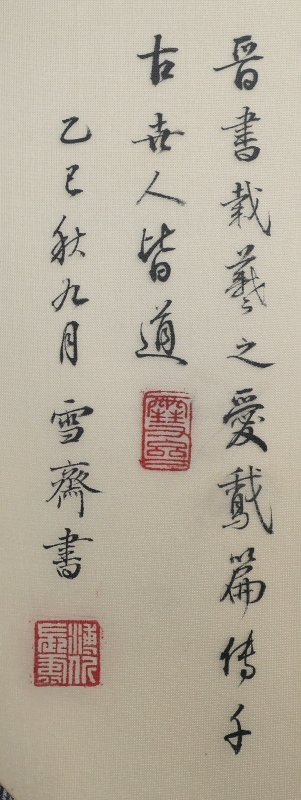 晋書載羲之愛鵞篇傳千
古世人皆道
乙巳秋九月雪齋書